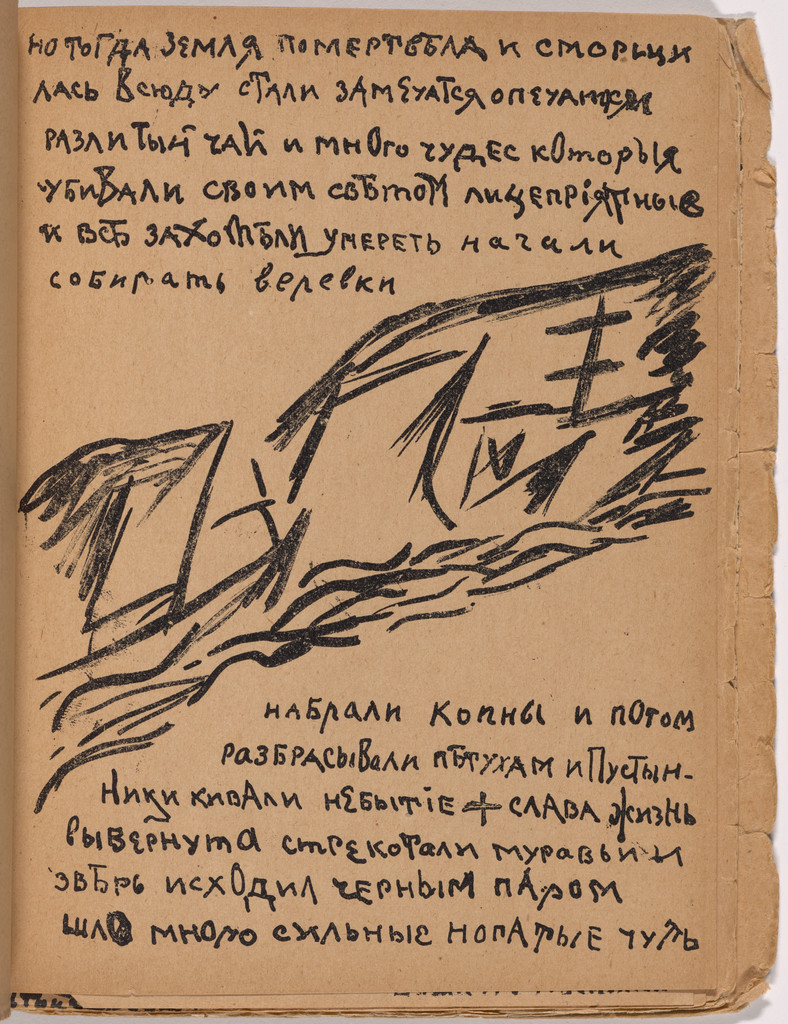 но тогда земля помертвѣла и сморщи
лась всюду стали замечатся опечатки
разлитый чай и много чудес которыя
убивали своим свѣтом лицепрiятные
и всѣ захотѣли умереть начали
собирать веревки
набрали копны и потом
разбрасывали пѣтухам и Пустын-
ники кивали небытiе + слава жизнь
вывернута стрекотали муравьи и
звѣрь исходил черным паром
шло много сильные ногатые чуть